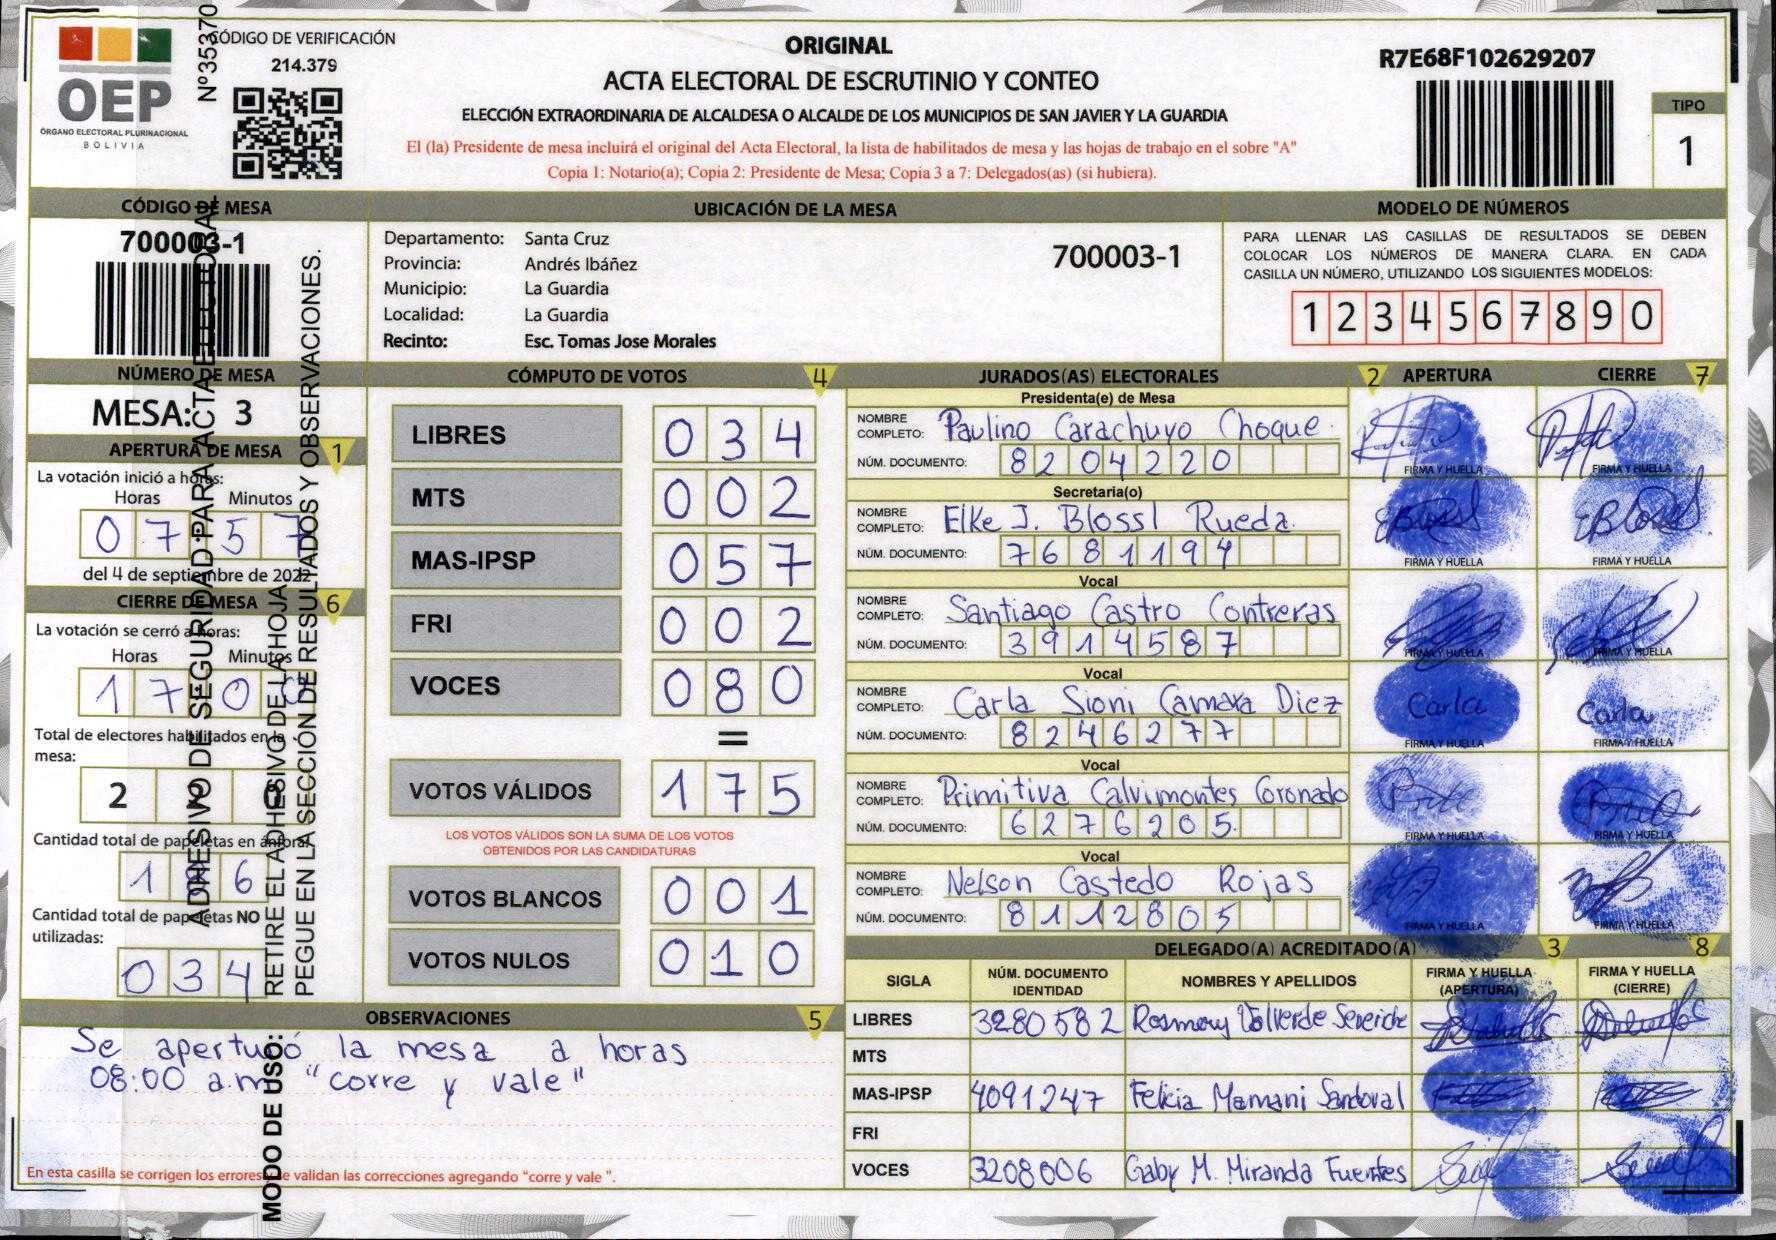 Nº35370
CÓDIGO DE VERIFICACIÓN
214.379
OEP
ÓRGANO ELECTORAL PLURINACIONAL
BOLIVIA
ORIGINAL
ACTA ELECTORAL DE ESCRUTINIO Y CONTEO
ELECCIÓN EXTRAORDINARIA DE ALCALDESA O ALCALDE DE LOS MUNICIPIOS DE SAN JAVIER Y LA GUARDIA
El (la) Presidente de mesa incluirá el original del Acta Electoral, la lista de habilitados de mesa y las hojas de trabajo en el sobre "A"
Copia 1: Notario(a); Copia 2: Presidente de Mesa; Copia 3 a 7: Delegados(as) (si hubiera).
R7E68F102629207
TIPO
1
CÓDIGO DE MESA
700003-1
UBICACIÓN DE LA MESA
Departamento: Santa Cruz
Provincia: Andrés Ibáñez
Municipio: La Guardia
Localidad: La Guardia
Recinto: Esc. Tomas Jose Morales
700003-1
MODELO DE NÚMEROS
PARA LLENAR LAS CASILLAS DE RESULTADOS SE DEBEN
COLOCAR LOS NÚMEROS DE MANERA CLARA. EN CADA
CASILLA UN NÚMERO, UTILIZANDO LOS SIGUIENTES MODELOS:
1 2 3 4 5 6 7 8 9 0
NÚMERO DE MESA
MESA: 3
APERTURA DE MESA 1
La votación inició a horas:
Horas Minutos
0 7 5 7
del 4 de septiembre de 2022
CIERRE DE MESA 6
La votación se cerró a horas:
Horas Minutos
1 7 0
Total de electores habilitados en la
mesa:
2 0
Cantidad total de papeletas en ánfora:
1 8 6
Cantidad total de papeletas NO
utilizadas:
0 3 4
ADHESIVO DE SEGURIDAD PARA ACTA ELECTORAL
MODO DE USO: RETIRE EL ADHESIVO DE LA HOJA
PEGUE EN LA SECCIÓN DE RESULTADOS Y OBSERVACIONES.
CÓMPUTO DE VOTOS 4
LIBRES 0 3 4
MTS 0 0 2
MAS-IPSP 0 5 7
FRI 0 0 2
VOCES 0 8 0
=
VOTOS VÁLIDOS 1 7 5
LOS VOTOS VÁLIDOS SON LA SUMA DE LOS VOTOS
OBTENIDOS POR LAS CANDIDATURAS
VOTOS BLANCOS 0 0 1
VOTOS NULOS 0 1 0
JURADOS(AS) ELECTORALES 2 APERTURA CIERRE 7
Presidenta(e) de Mesa
NOMBRE COMPLETO: Paulino Carachuyo Choque.
NÚM. DOCUMENTO: 8204220
FIRMA Y HUELLA FIRMA Y HUELLA
Secretaria(o)
NOMBRE COMPLETO: Elke J. Blossl Rueda.
NÚM. DOCUMENTO: 7681194
FIRMA Y HUELLA FIRMA Y HUELLA
Vocal
NOMBRE COMPLETO: Santiago Castro Contreras
NÚM. DOCUMENTO: 3914587
FIRMA Y HUELLA FIRMA Y HUELLA
Vocal
NOMBRE COMPLETO: Carla Sioni Camara Diez
NÚM. DOCUMENTO: 8246277
Carla Carla
FIRMA Y HUELLA FIRMA Y HUELLA
Vocal
NOMBRE COMPLETO: Primitiva Calvimontes Coronado
NÚM. DOCUMENTO: 6276205.
FIRMA Y HUELLA FIRMA Y HUELLA
Vocal
NOMBRE COMPLETO: Nelson Castedo Rojas
NÚM. DOCUMENTO: 8112805
FIRMA Y HUELLA FIRMA Y HUELLA
DELEGADO(A) ACREDITADO(A) 3 8
SIGLA NÚM. DOCUMENTO IDENTIDAD NOMBRES Y APELLIDOS FIRMA Y HUELLA (APERTURA) FIRMA Y HUELLA (CIERRE)
LIBRES 3280582 Rosmery Valverde Seveiche
MTS
MAS-IPSP 4091247 Felicia Mamani Sandoval
FRI
VOCES 3208006 Gaby M. Miranda Fuentes
OBSERVACIONES 5
Se aperturó la mesa a horas
08:00 a.m "corre y vale"
En esta casilla se corrigen los errores se validan las correcciones agregando "corre y vale ".